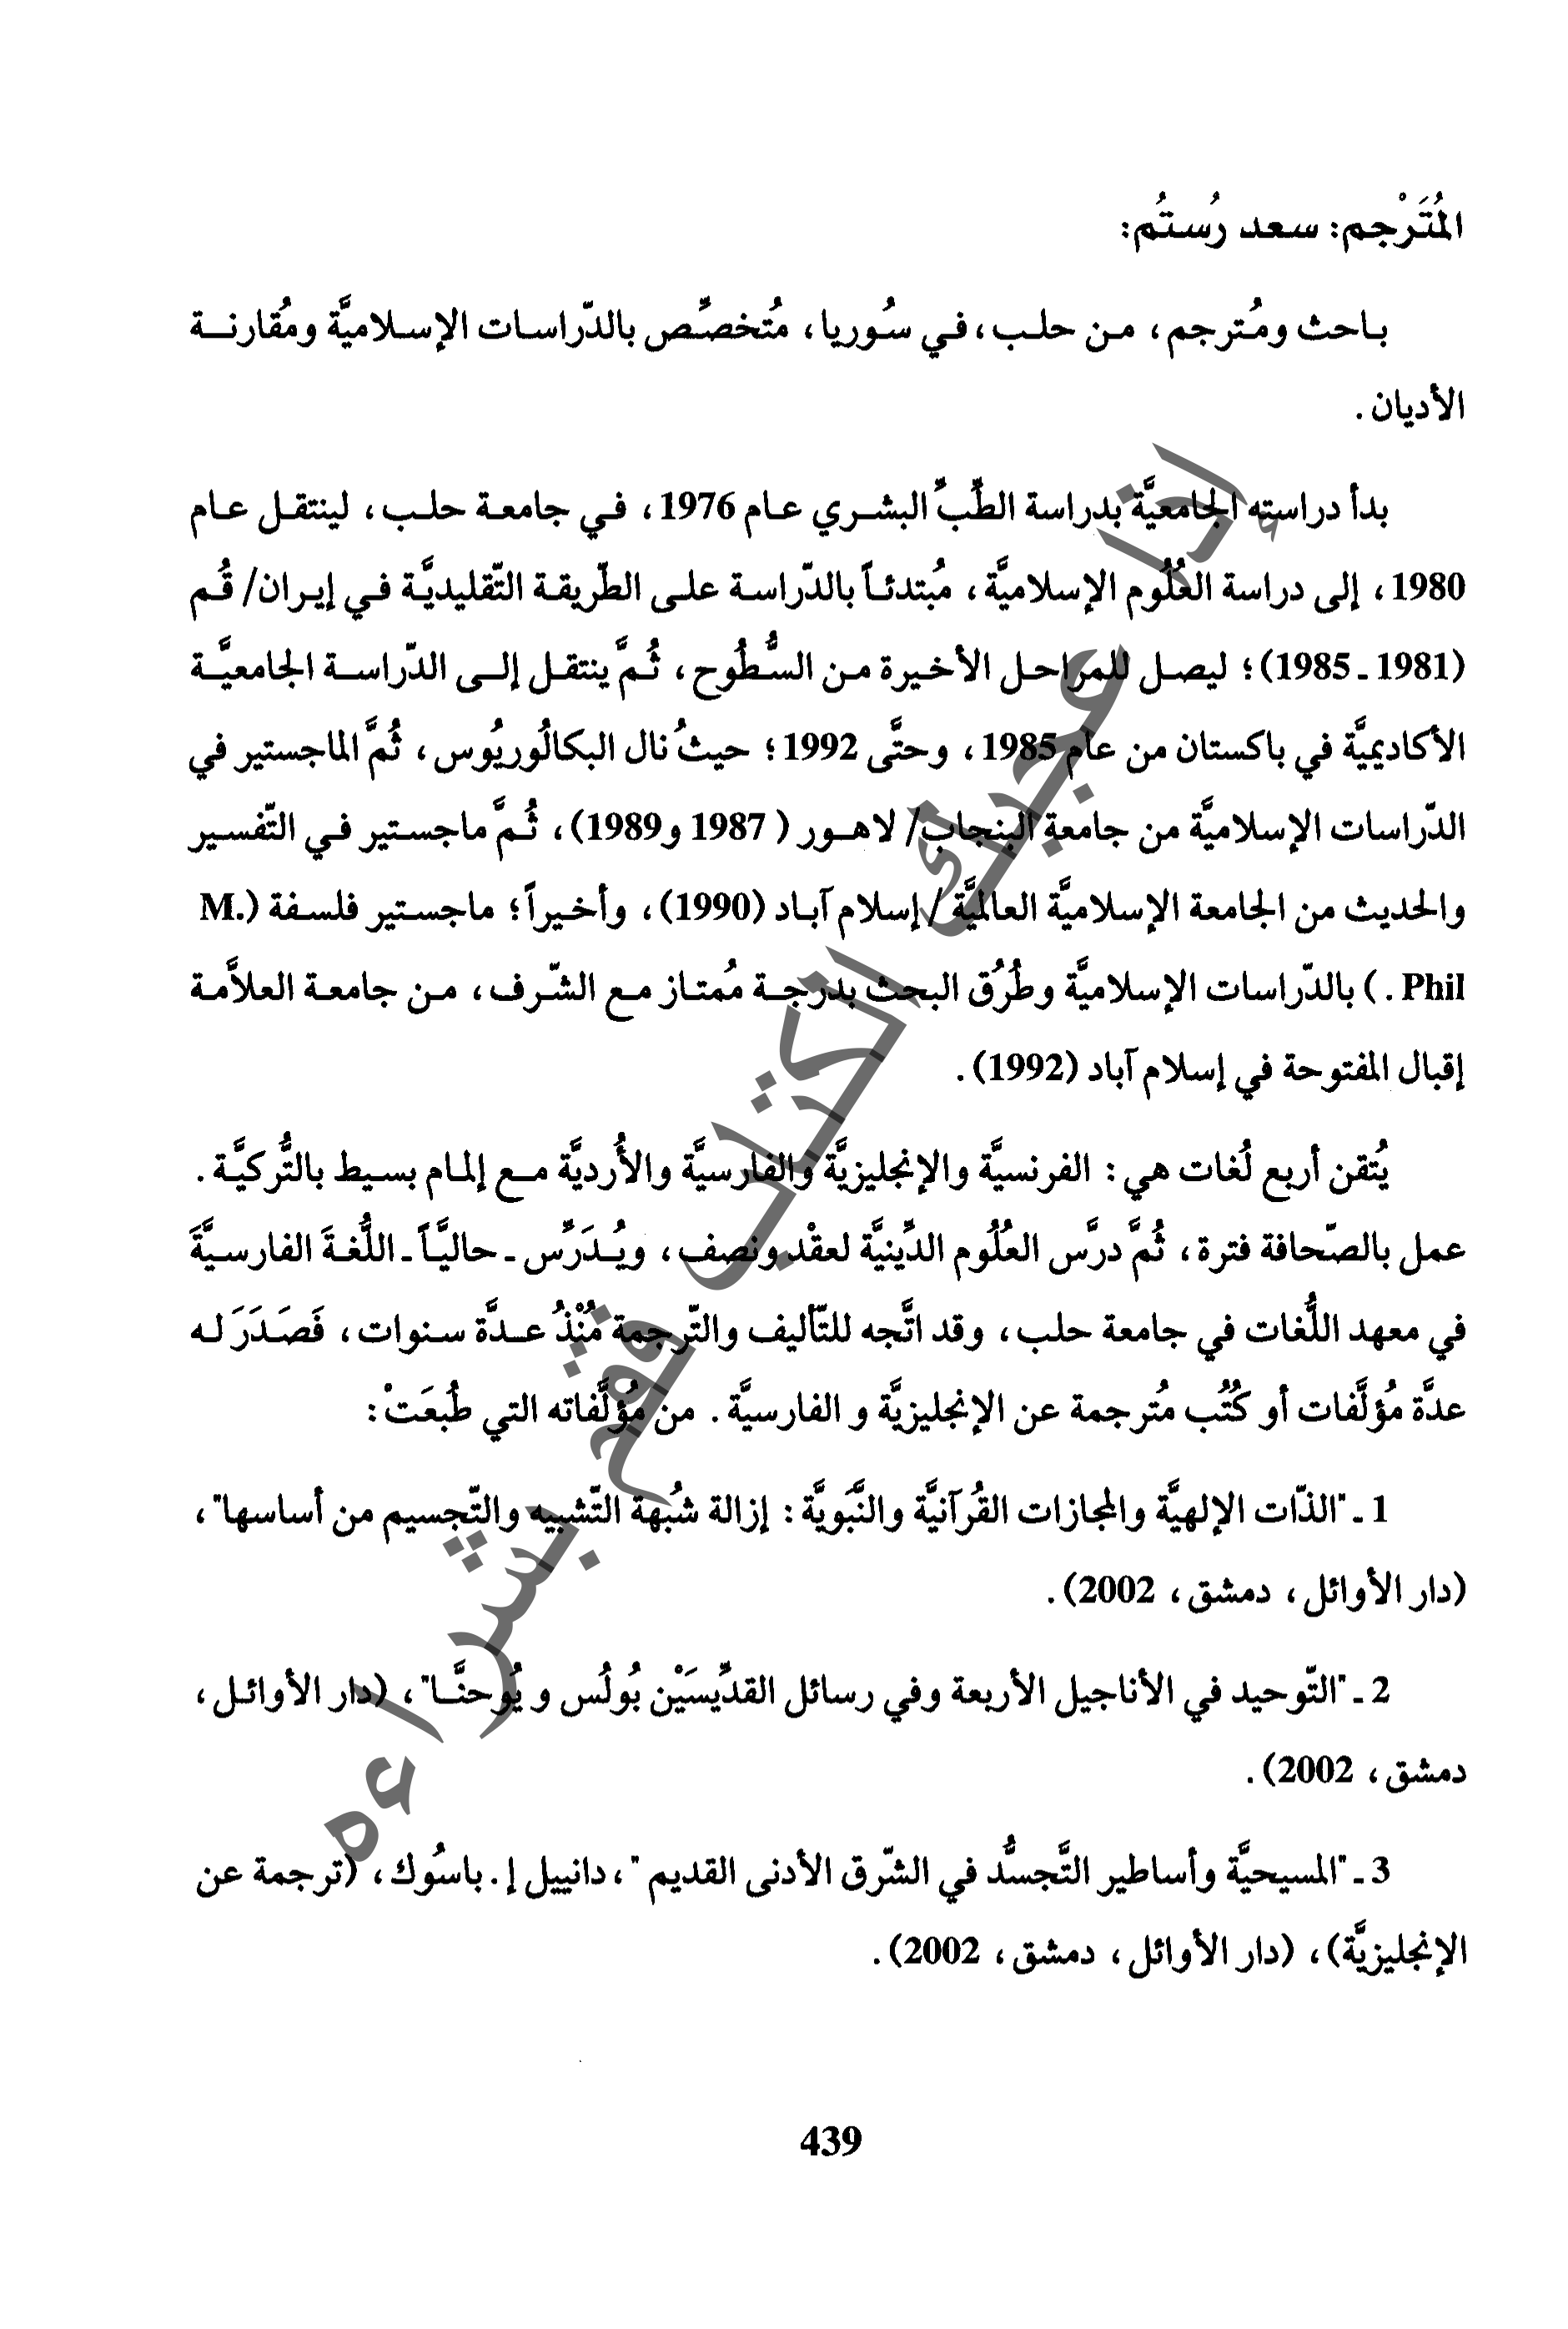 المُتَرْجم: سعد رُستُم:
باحث ومُترجم، من حلب، في سُوريا، مُتخصِّص بالدّراسات الإسلاميَّة ومُقارنة
الأديان.
بدأ دراسته الجامعيَّة بدراسة الطِّبِّ البشري عام 1976، في جامعة حلب، لينتقل عام
1980، إلى دراسة العُلُوم الإسلاميَّة، مُبتدئاً بالدّراسة على الطّريقة التّقليديَّة في إيران/ قُم
(1981 ـ 1985)؛ ليصل للمراحل الأخيرة من السُّطُوح، ثُمَّ ينتقل إلى الدّراسة الجامعيَّة
الأكاديميَّة في باكستان من عام 1985، وحتَّى 1992؛ حيثُ نال البكالُوريُوس، ثُمَّ الماجستير في
الدّراسات الإسلاميَّة من جامعة البنجاب/ لاهور ( 1987 و1989)، ثُمَّ ماجستير في التّفسير
والحديث من الجامعة الإسلاميَّة العالميَّة / إسلام آباد (1990)، وأخيراً؛ ماجستير فلسفة (M.
Phil . ) بالدّراسات الإسلاميَّة وطُرُق البحث بدرجة مُمتاز مع الشّرف، من جامعة العلاَّمة
إقبال المفتوحة في إسلام آباد (1992).
يُتقن أربع لُغات هي: الفرنسيَّة والإنجليزيَّة والفارسيَّة والأُرديَّة مع إلمام بسيط بالتُّركيَّة.
عمل بالصّحافة فترة، ثُمَّ درَّس العُلُوم الدِّينيَّة لعقْد ونصف، ويُدَرِّس ـ حاليَّاً ـ اللُّغةَ الفارسيَّةَ
في معهد اللُّغات في جامعة حلب، وقد اتَّجه للتّأليف والتّرجمة مُنْذُ عدَّة سنوات، فَصَدَرَ له
عدَّة مُؤلَّفات أو كُتُب مُترجمة عن الإنجليزيَّة و الفارسيَّة. من مُؤلَّفاته التي طُبعَتْ:
1 ـ "الذّات الإلهيَّة والمجازات القُرآنيَّة والنَّبَويَّة: إزالة شُبهة التّشبيه والتّجسيم من أساسها"،
(دار الأوائل، دمشق، 2002).
2 ـ "التّوحيد في الأناجيل الأربعة وفي رسائل القدِّيسَيْن بُولُس و يُوحنَّا"، (دار الأوائل،
دمشق، 2002).
3 ـ "المسيحيَّة وأساطير التَّجسُّد في الشّرق الأدنى القديم "، دانييل إ. باسُوك، (ترجمة عن
الإنجليزيَّة)، (دار الأوائل، دمشق، 2002).
439
إذا عجبك الكتاب قم بشراءه